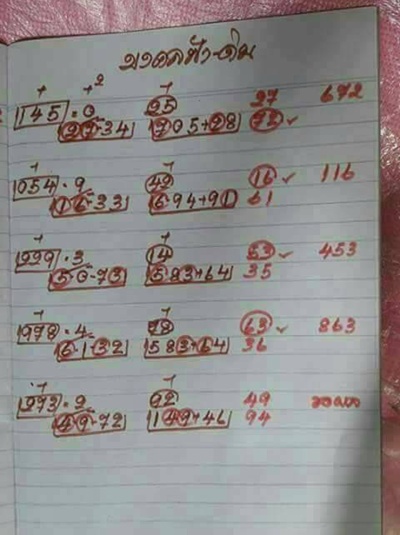 + +2 +
145 · 0 25 27 672
27-34 1705+28 72 ✓
+ +
054 · 9 42 16 ✓ 116
16-33 694+91 61
+ +
999 · 3 14 53 ✓ 453
50-73 583+64 35
+ +
978 · 4 78 63 ✓ 863
61-32 583+64 36
+ +
973 · 9 92 49
49-72 1149+46 94